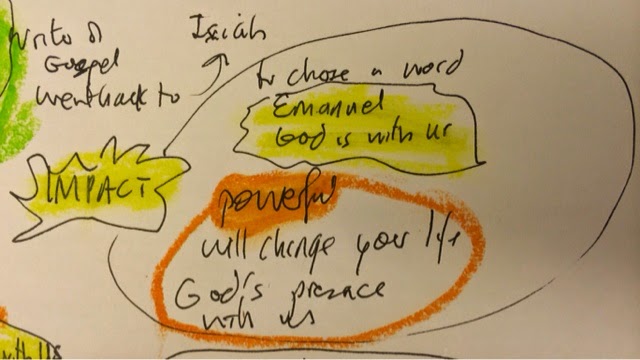 Writer of
Gospel
went back to
Isaiah
to chose a word
Emanuel
God is with us
IMPACT
powerful
will change your life
God's presnace
with us
with us